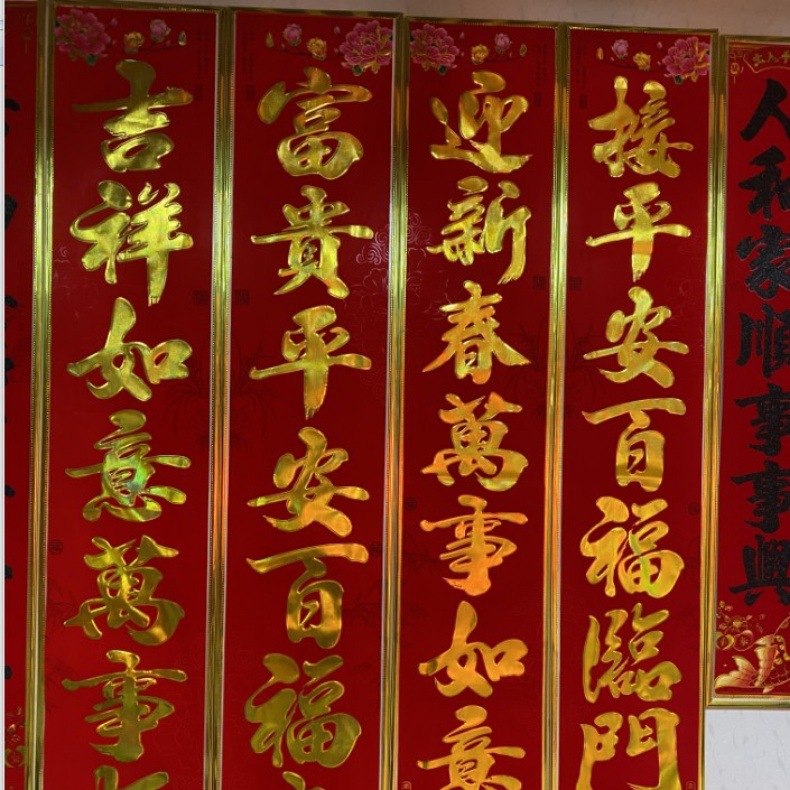 吉祥如意萬事
富貴平安百福
迎新春萬事如意
接平安百福臨門
人和家順事事興